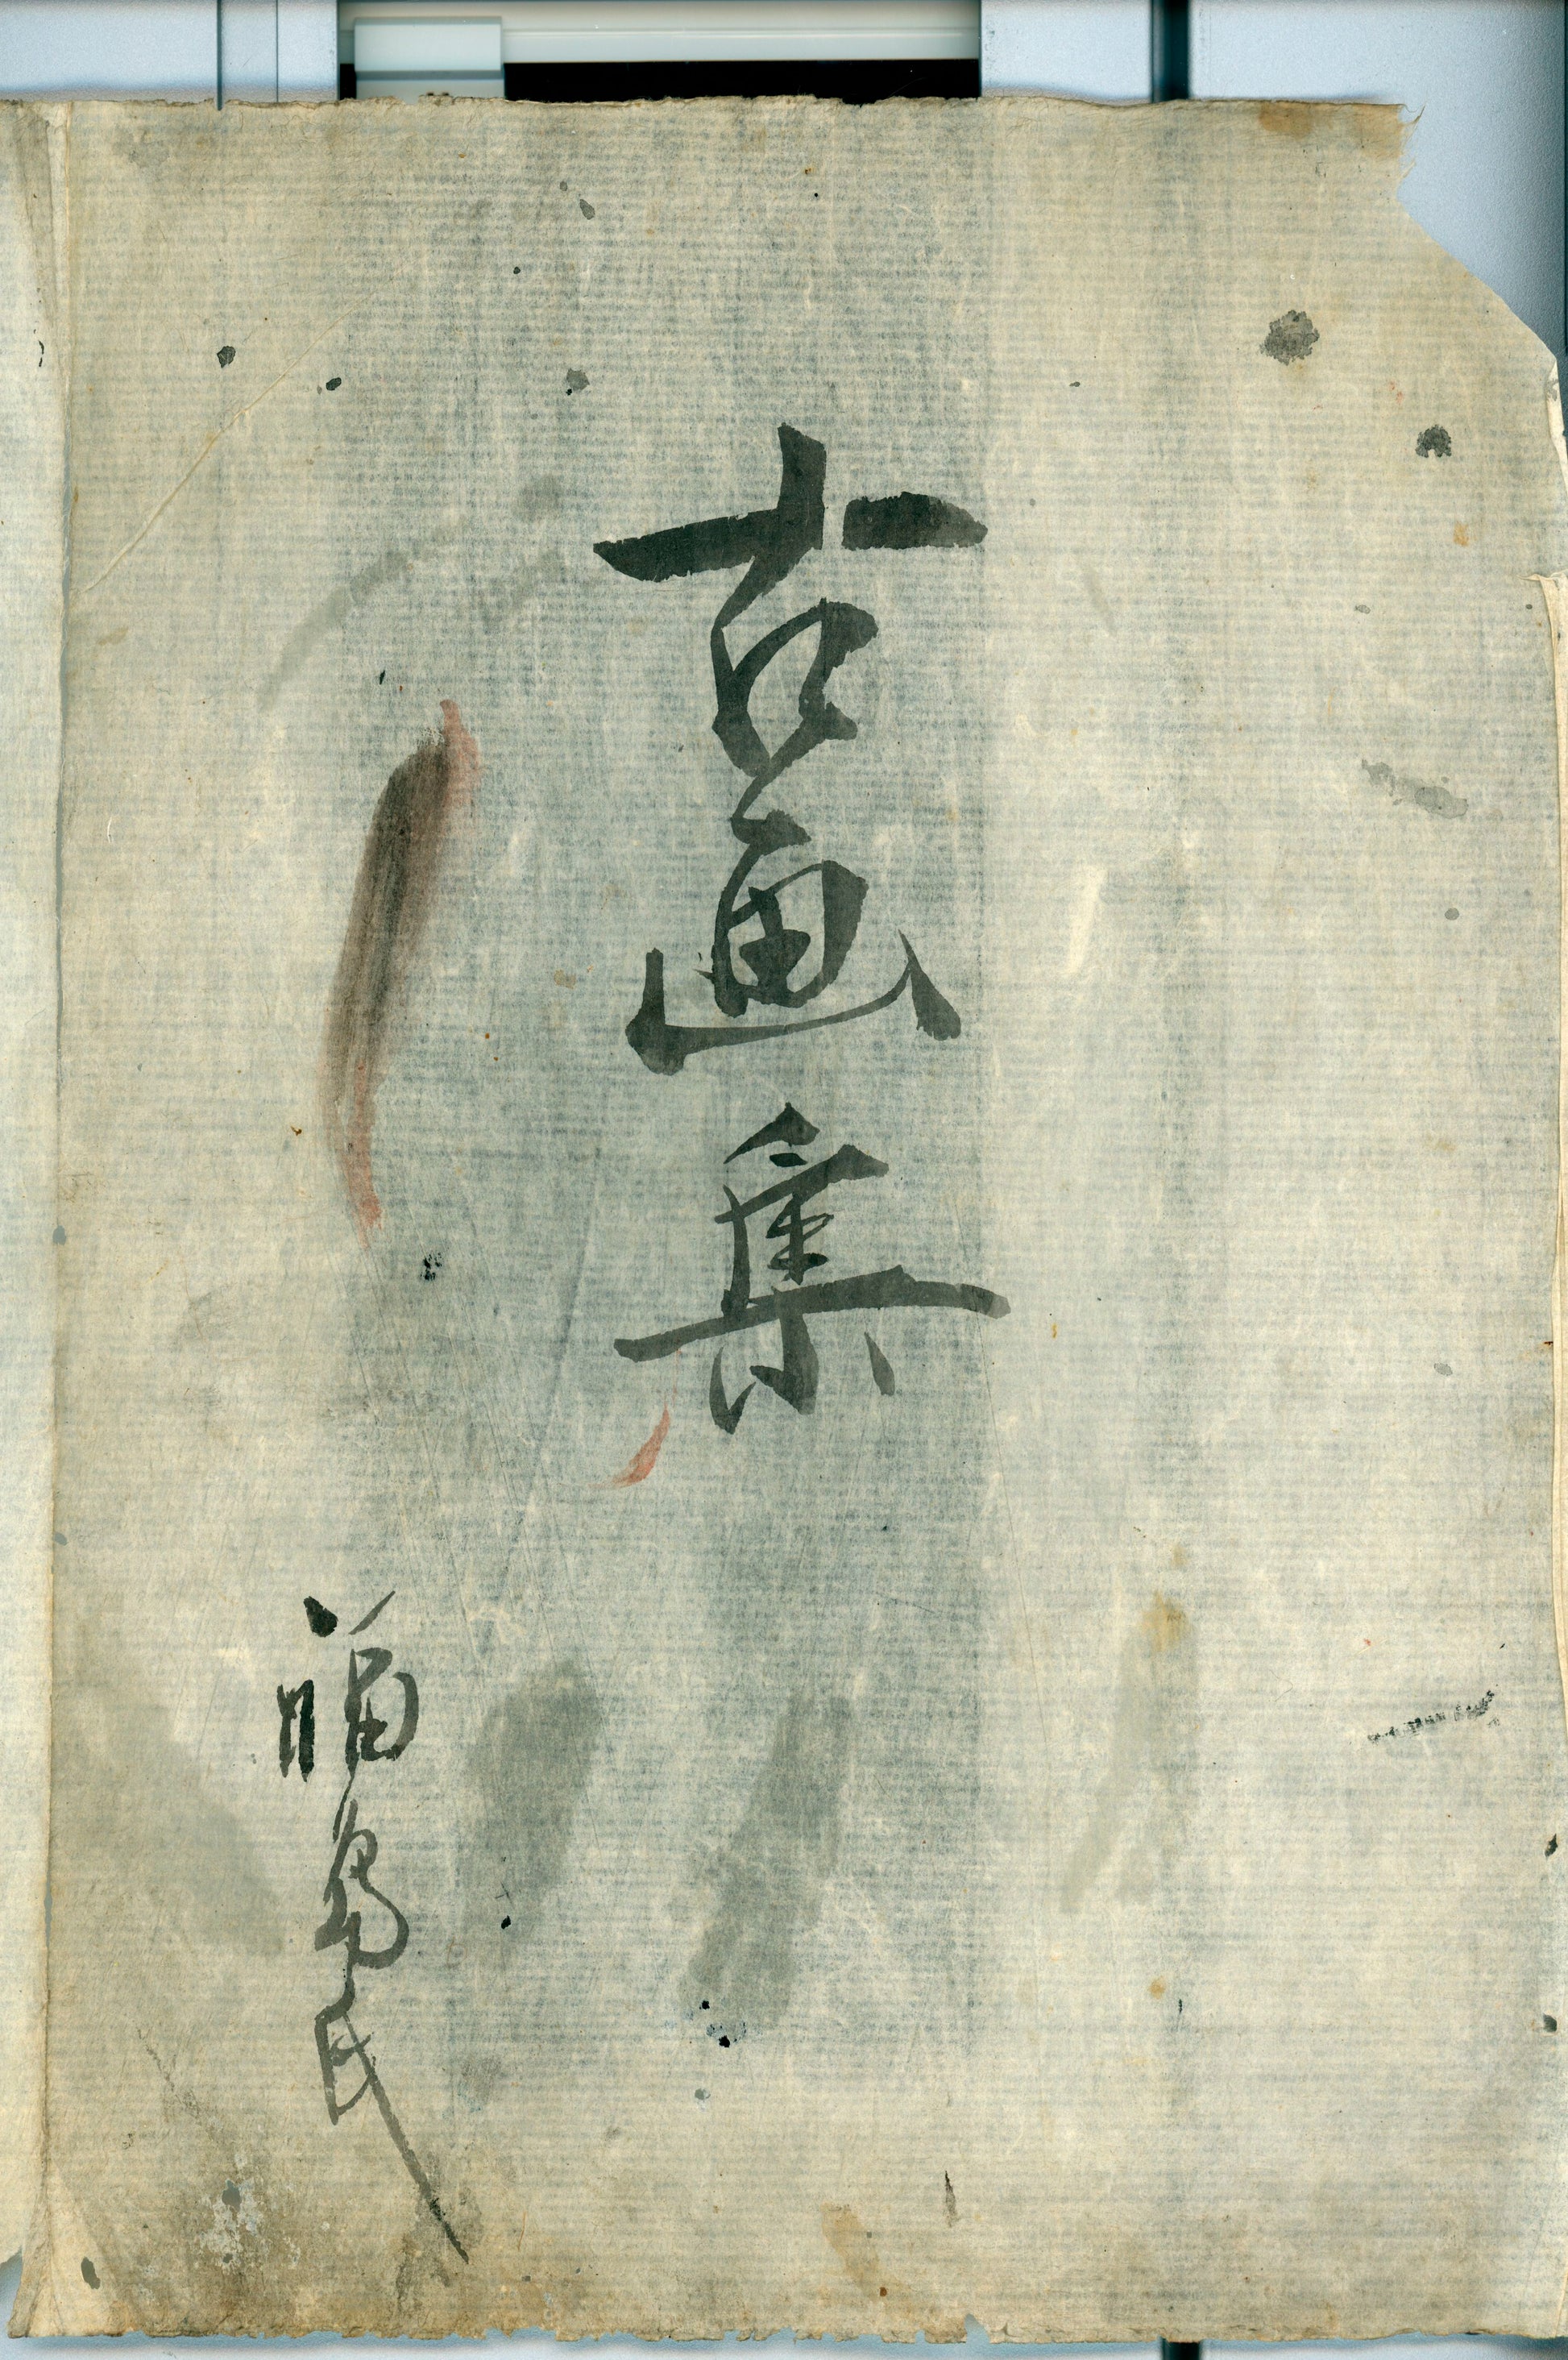 古画集
福島氏